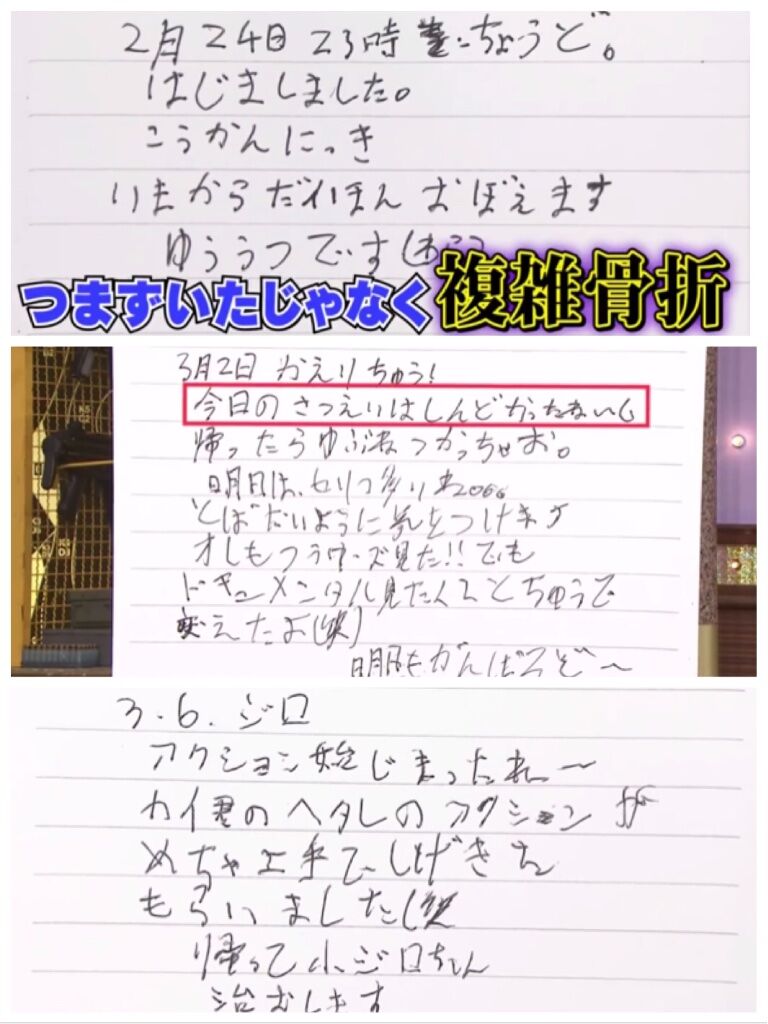 2月24日23時ちょうど。
はじましました。
こうかんにっき
いまからだいほんおぼえます
ゆううつです(わら
つまずいたじゃなく複雑骨折
3月2日 かえりちゅう!
今日のさつえいはしんどかったない
帰ったらゆぶねつかっちゃお。
明日は、
オレもフラワーズ見た!!でも
ドキュメンタル見たくてとちゅうで
変えたよ(笑)
明日もがんばろぞ〜
3.6.ジロ
アクション始じまったねー〜
カイ君のヘタレのアクションが
めちゃ上手でしげきを
もらいました(笑
帰って小ジロちゃん
治おします